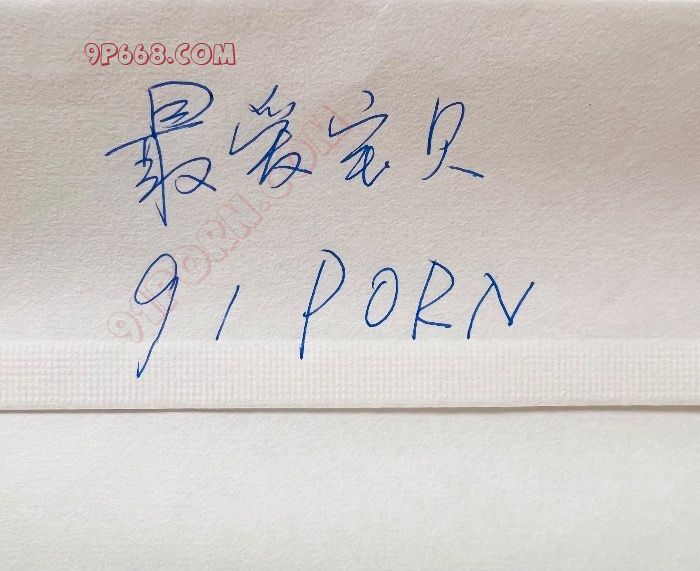 9P668.COM
最爱宝贝
91PORN.COM
91 PORN